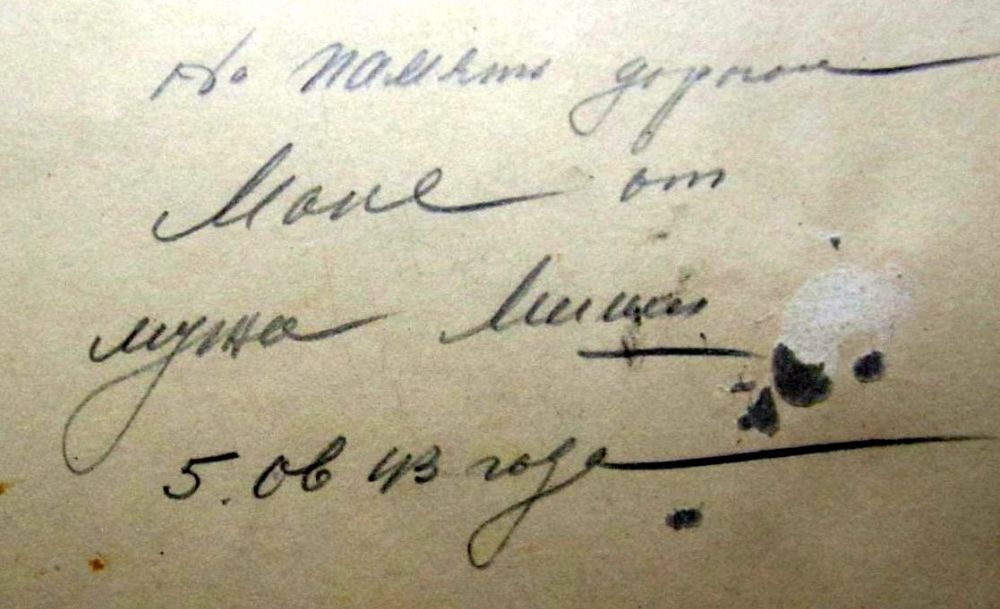 На память дорогой
Моне от
мужа Миши
5.06 43 года